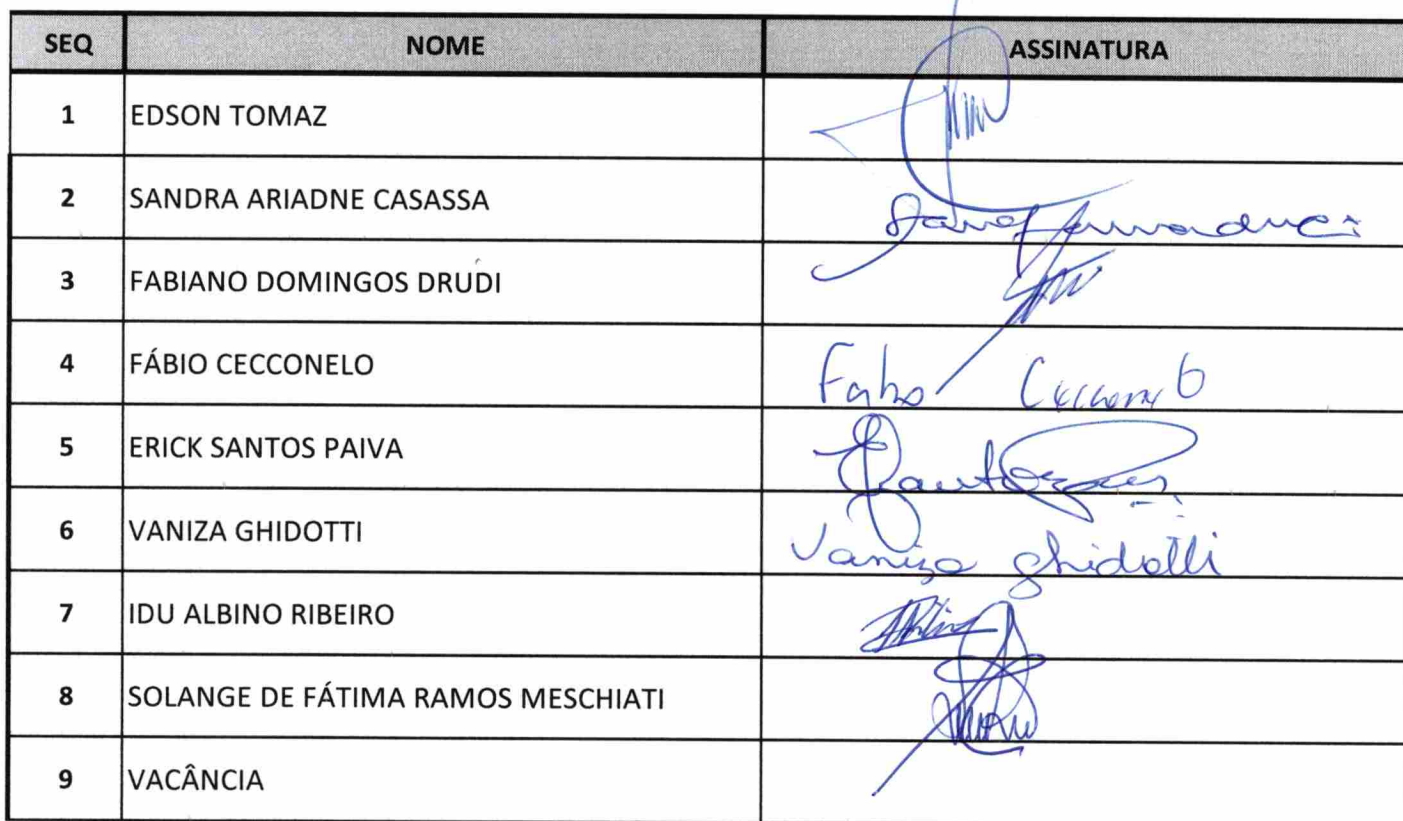 SEQ NOME ASSINATURA
1 EDSON TOMAZ
2 SANDRA ARIADNE CASASSA
3 FABIANO DOMINGOS DRUDI
4 FÁBIO CECCONELO
5 ERICK SANTOS PAIVA
6 VANIZA GHIDOTTI Vaniza Ghidotti
7 IDU ALBINO RIBEIRO
8 SOLANGE DE FÁTIMA RAMOS MESCHIATI
9 VACÂNCIA